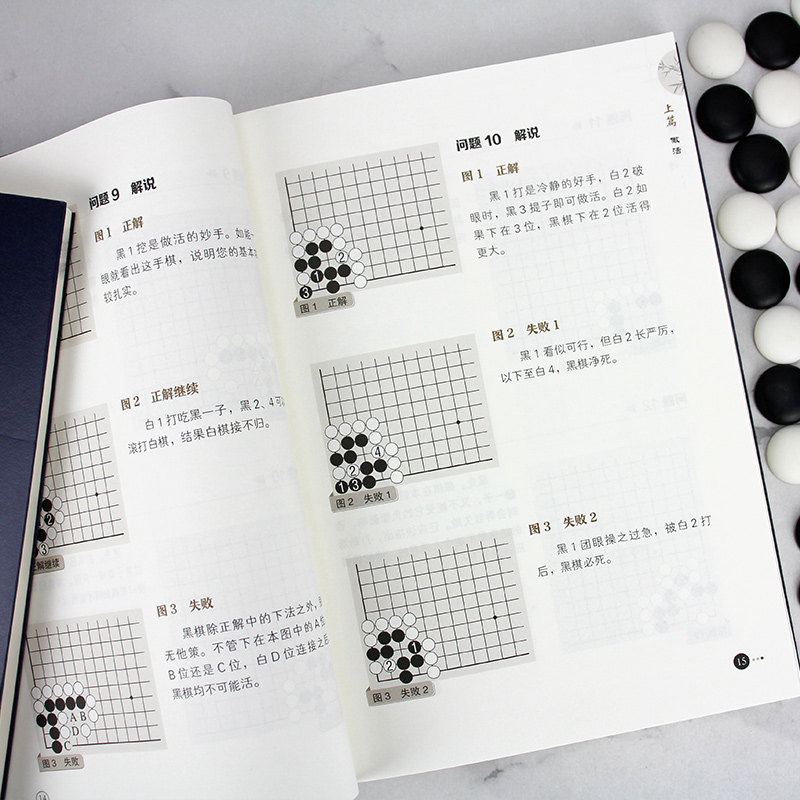 问题9 解说
图1 正解
黑1挖是做活的妙手。如能
眼就看出这手棋，说明您的基本
较扎实。
图2 正解继续
白1打吃黑一子，黑2、4可
滚打白棋，结果白棋接不归。
正解继续
图3 失败
黑棋除正解中的下法之外，
无他策。不管下在本图中的A位
B位还是C位，白D位连接之后
黑棋均不可能活。
A B
D
C
图3 失败
14
问题10 解说
图1 正解
黑1打是冷静的好手，白2破
眼时，黑3提子即可做活。白2如
果下在3位，黑棋下在2位活得
更大。
2
1
3
图1 正解
图2 失败1
黑1看似可行，但白2长严厉，
以下至白4，黑棋净死。
4
2
1 3
图2 失败1
图3 失败2
黑1团眼操之过急，被白2打
后，黑棋必死。
1
2
图3 失败2
上篇 做活
15